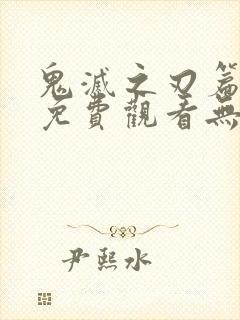 鬼滅之刃篇
免費觀看無
尹熙水